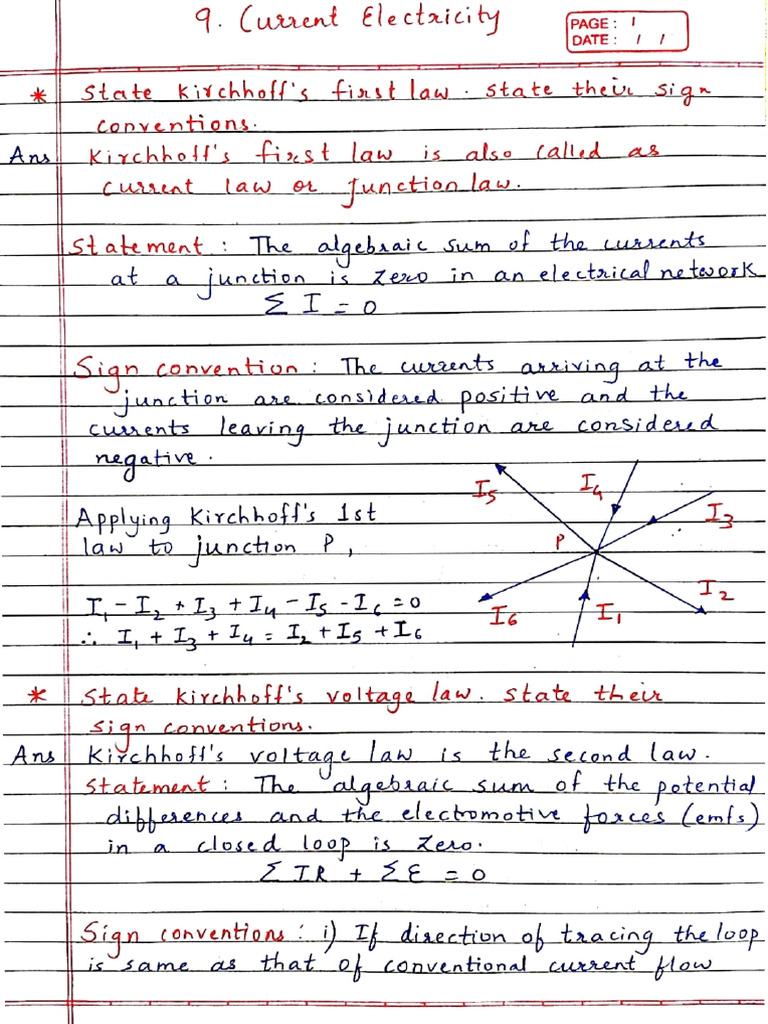 9. Current Electricity
PAGE: 1
DATE: / /
* State Kirchhoff's first law. State their sign
conventions.
Ans Kirchhoff's first law is also called as
current law or junction law.
Statement : The algebraic sum of the currents
at a junction is zero in an electrical network
Σ I = 0
Sign convention : The currents arriving at the
junction are considered positive and the
currents leaving the junction are considered
negative.
Applying Kirchhoff's 1st
law to junction P,
I₁ - I₂ + I₃ + I₄ - I₅ - I₆ = 0
∴ I₁ + I₃ + I₄ = I₂ + I₅ + I₆
I₅ I₄ I₃
P
I₆ I₁ I₂
* State Kirchhoff's voltage law. State their
sign conventions.
Ans Kirchhoff's voltage law is the second law.
Statement : The algebraic sum of the potential
differences and the electromotive forces (emfs)
in a closed loop is zero.
Σ IR + Σ Ɛ = 0
Sign conventions : i) If direction of tracing the loop
is same as that of conventional current flow